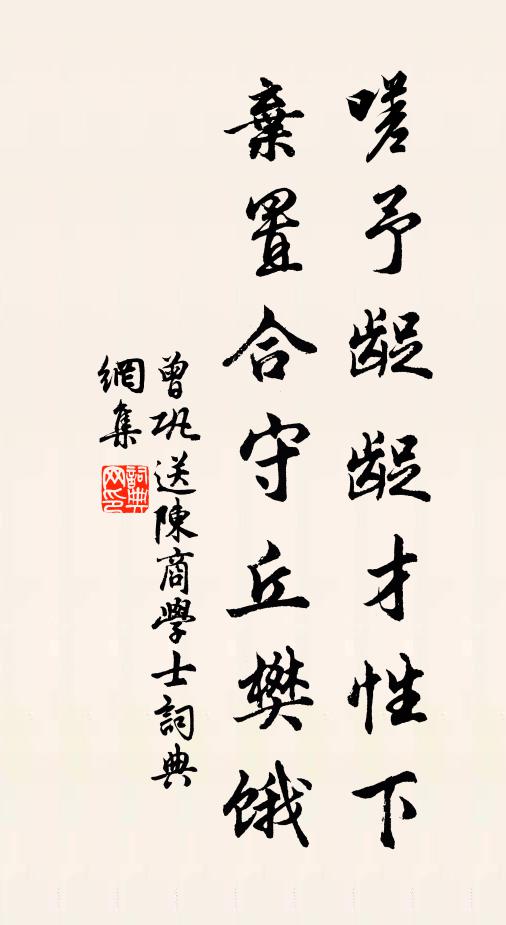 嗟予齪齪才性下
棄置合守丘樊餓
曾巩送陳商學士詞典
網集
詞典網印